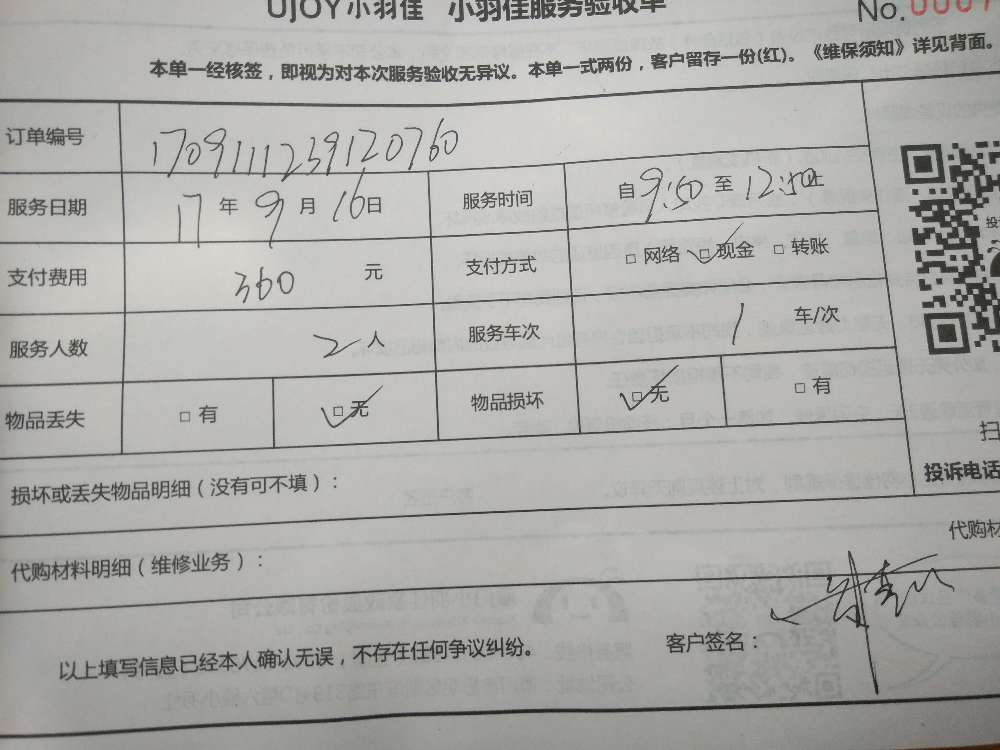 UJOY小羽佳 小羽佳服务验收单 No.
本单一经核签，即视为对本次服务验收无异议。本单一式两份，客户留存一份(红)。《维保须知》详见背面。
订单编号 1709111239120760
服务日期 17年9月16日 服务时间 自9:50至12:50止
支付费用 360元 支付方式 □网络 □现金 □转账
服务人数 2人 服务车次 1车/次
物品丢失 □有 □无 物品损坏 □无 □有
损坏或丢失物品明细（没有可不填）：
扫
投诉电话
代购材料明细（维修业务）： 代购材
以上填写信息已经本人确认无误，不存在任何争议纠纷。 客户签名：